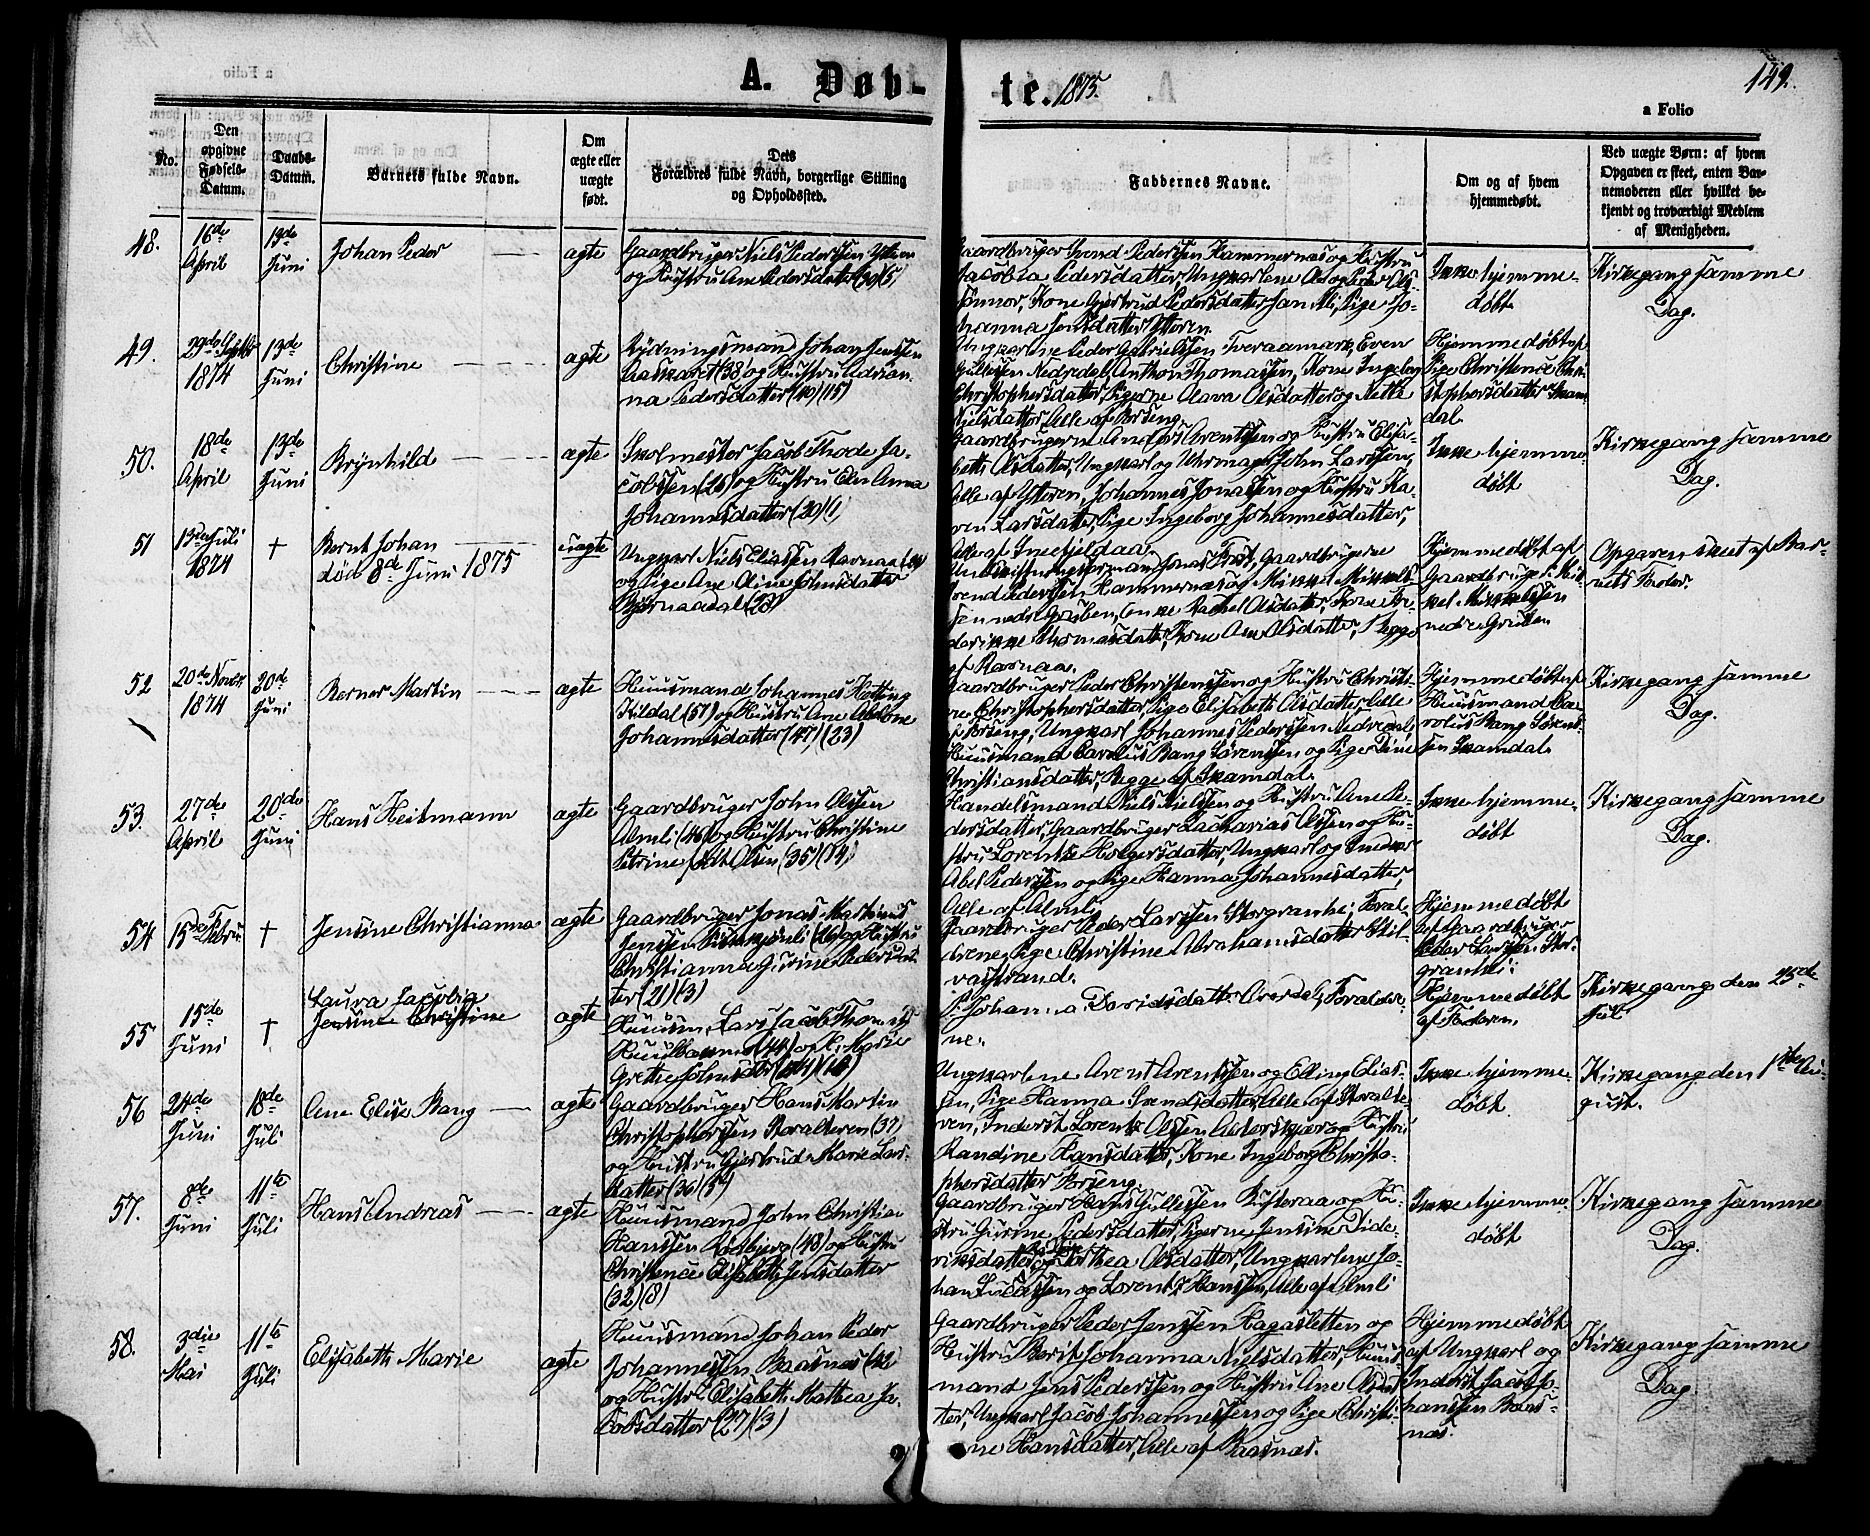 A. Døb-
te. 1875.
149.
a Folio
No.
Den
opgivne
Fødsels-
Datum.
Daabs-
Datum.
Barnets fulde Navn.
Om
ægte eller
uægte
født.
Dets
Forældres fulde Navn, borgerlige Stilling
og Opholdssted.
Faddernes Navne.
Om og af hvem
hjemmedøbt.
Ved uægte Børn: af hvem
Opgaven er skeet, enten Bar-
nemoderen eller hvilket be-
kjendt og troværdigt Medlem
af Menigheden.
48.
16de
April
13de
Juni
Johan Peder
ægte
Gaardbruger Niels Pederssen Ytteren
og Hustru Ane Pedersdatter
Gaardbruger Svend Pederssen Hammernæs og Hustru
Jacobia Pedersdatter, Ungkarlene
Kone Gjertrud Pedersdatter Pige Jo-
hanna Jensdatter Ytteren
Ikke hjemme-
døbt
Kirkegang samme
Dag.
49.
29de Septbr
1874
13de
Juni
Christine
ægte
Rydningsmand Johan Jenssen
(38) og Hustru Adrian-
na Pedersdatter (40) (15)
Ungkarlene Peder Gabrielssen Tveraamark, Even
Gullessen Nedredal, Anthon Thomassen, Kone Ingeborg
Christophersdatter, Pigerne Olava Olsdatter og
Nielsdatter Alle af Børseng
Hjemmedøbt af
Pige Christence Chri-
stophersdatter Skam-
dal
50.
18de
April
13de
Juni
Brynhild
ægte
Skolmester Jacob Thode Ja-
cobssen (26) og Hustru Elen Anna
Johannesdatter (20) (1)
Gaardbrugerne Anders Arentssen og Hustru Elisa-
beth Olsdatter, Ungkarl og Uhrmager John Larssen,
Alle af Ytteren, Johannes Jonassen og Hustru Ka-
ren Larsdatter, Pige Ingeborg Johannesdatter,
Alle af
Ikke hjemme-
døbt
Kirkegang samme
Dag.
51
13de Juli
1874
†
Bernt Johan
død 8de Juni 1875
uægte
Ungkarl Niels Eliassen
og Pige Ane Oline Johnsdatter
Bjørnaadal (23)
Jonas Frost, Gaardbrugerne
Svend Pederssen Hammernæs og Mikkel Mikkels-
sen nedre Gruben, Enke Rachel Olsdatter, Kone Fre-
derikke Thomasdatter, Kone Ane Olsdatter, Begge
af
Hjemmedøbt af
Gaardbruger Mik-
kel Mikkelssen
nedre Gruben
Opgaven skeet af Bar-
nets Fader.
52
20de Novbr
1874
20de
Juni
Berner Martin
ægte
Huusmand Johannes
Kildal (51) og Hustru Ane
Johannesdatter (47) (23)
Gaardbruger Peder Christenssen og Hustru Christi-
ne Christophersdatter, Pige Elisabeth Olsdatter, Alle
af Børseng, Ungkarl Johannes Pederssen Nedredal,
Huusmand Carolus Bang Sørenssen og Pige Dine
Christiansdatter, Begge af Skamdal.
Hjemmedøbt af
Huusmand Ca-
rolus Bang Sørens-
sen Skamdal.
Kirkegang samme
Dag.
53.
27de
April
20de
Juni
Hans Heitmann
ægte
Gaardbruger John Olssen
Almli (46) og Hustru Christine
Petrine født Olsen (35) (14)
Handelsmand Niels Nielssen og Hustru Ane Pe-
dersdatter, Gaardbruger Zacharias Olssen og Hu-
stru Lorentse Holgersdatter, Ungkarl og Snedker
Abel Pederssen og Pige Hanna Johannesdatter,
Alle af Almli
Ikke hjemme-
døbt
Kirkegang samme
Dag.
54
15de Febru
†
Jensine Christianna
ægte
Gaardbruger Jonas Martinus
Jenssen og Hustru
Christianna Gurine Pedersdat-
ter (21) (3)
Gaardbruger Peder Larssen Storgranhei, Foræl-
drene, Pige Christine Abrahamsdatter
Hjemmedøbt
af Gaardbruger
Peder Larssen Stor-
granhei.
55
15de
Juni
†
Laura Jacobia
Jensine Christine
ægte
Huusm. Lars Jacob Thomassen
(44) og H. Marie
Grethe Johnsdtr
P. Johanna Davidsdatter Forældre-
ne.
Hjemmedøbt
af Faderen.
Kirkegang den 25de
Juli
56
24de
Juni
18de
Juli
Ane Elise Bang
ægte
Gaardbruger Hans Martin
Christophersen Storalteren (37)
og Hustru Gjertrud Marie Lars-
datter (36) (5)
Ungkarlene Arent Arentssen og Elling Elias-
sen, Pige Hanna Svendsdatter, Alle af Storalte-
ren, Inderst Lorents Olssen og Hustru
Randine Hansdatter, Kone Ingeborg Christo-
phersdatter Børseng.
Ikke hjemme-
døbt.
Kirkegang den 1ste Au-
gust.
57.
8de
Juni
11te
Juli
Hans Andreas
ægte
Huusmand John Christian
Hanssen (48) og Hustru
Christence Elisabeth Jensdatter
(32) (8)
Gaardbruger Hans Gullessen og Hu-
stru Gurine Pedersdatter, Pigerne Jensine Dide-
riksdatter og Dorthea Olsdatter, Ungkarlene Jo-
han Lucassen og Lorents Hanssen, Alle af Almli
Ikke hjemme-
døbt
Kirkegang samme
Dag.
58.
3die
Mai
11te
Juli
Elisabeth Marie
ægte
Huusmand Johan Peder
Johannessen Baasnæs
og Hustru Elisabeth Mathea Ja-
cobsdatter (27) (3)
Gaardbruger Peder Jenssen Hagasletten og
Hustru Berit Johanna Nielsdatter, Huus-
mand Jens Pederssen og Hustru Ane Olsdat-
ter, Ungkarl Jacob Johannessen og Pige Christi-
ne Hansdatter, Alle af Baasnæs.
Hjemmedøbt
af Ungkarl og
Inderst Jacob Jo-
hanssen Baas-
næs.
Kirkegang samme
Dag.